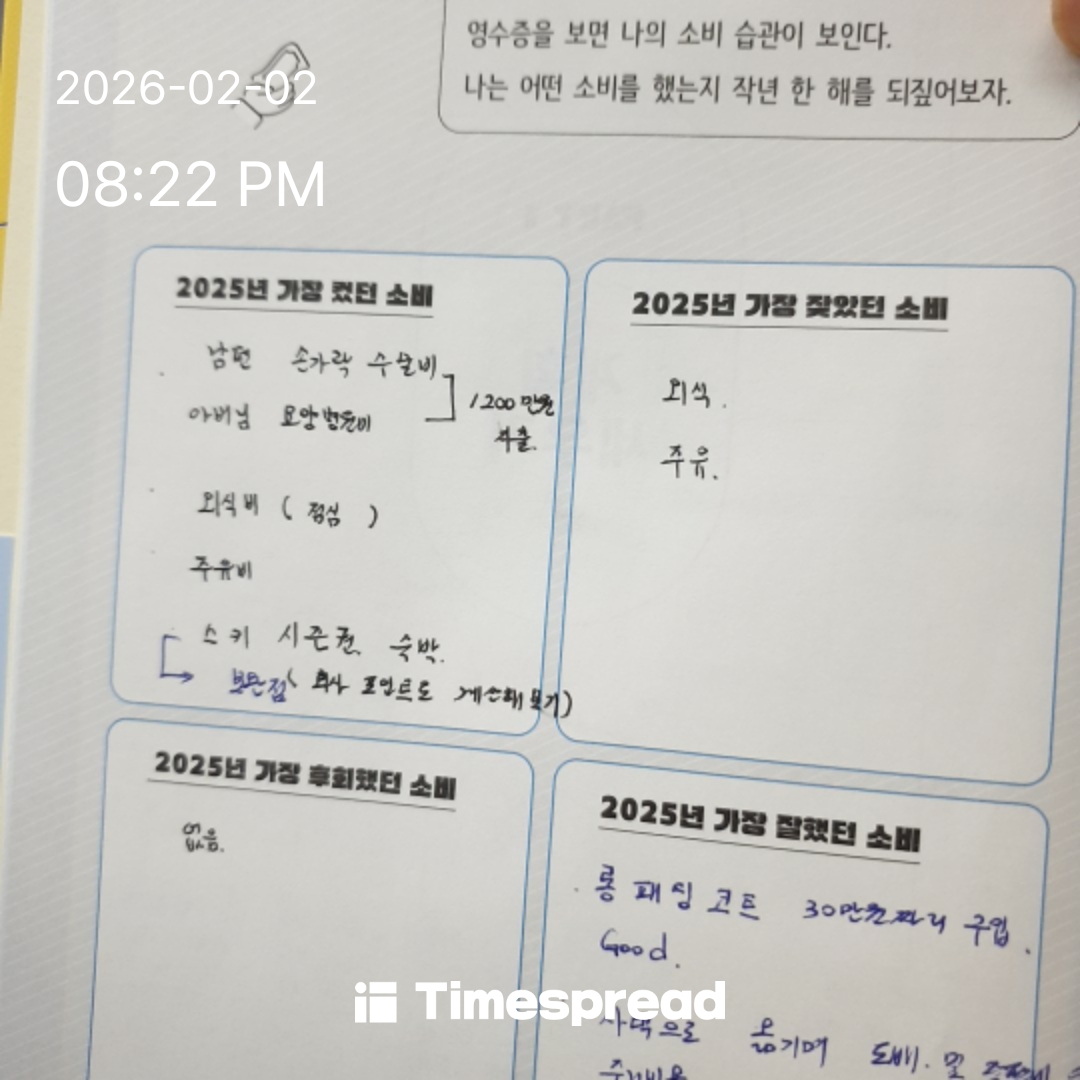 영수증을 보면 나의 소비 습관이 보인다.
나는 어떤 소비를 했는지 작년 한 해를 되짚어보자.
2026-02-02
08:22 PM
2025년 가장 컸던 소비
남편 손가락 수술비
아버님 요양병원비
1200만원
지출.
외식비 ( 점심 )
주유비
스키 시즌권, 숙박.
보완점( 회사 포인트도 계산해보기)
2025년 가장 잦았던 소비
외식.
주유.
2025년 가장 후회했던 소비
없음.
2025년 가장 잘했던 소비
롱 패딩 코트 30만원짜리 구입.
Good.
사택으로 옮기며 도배. 및
Timespread